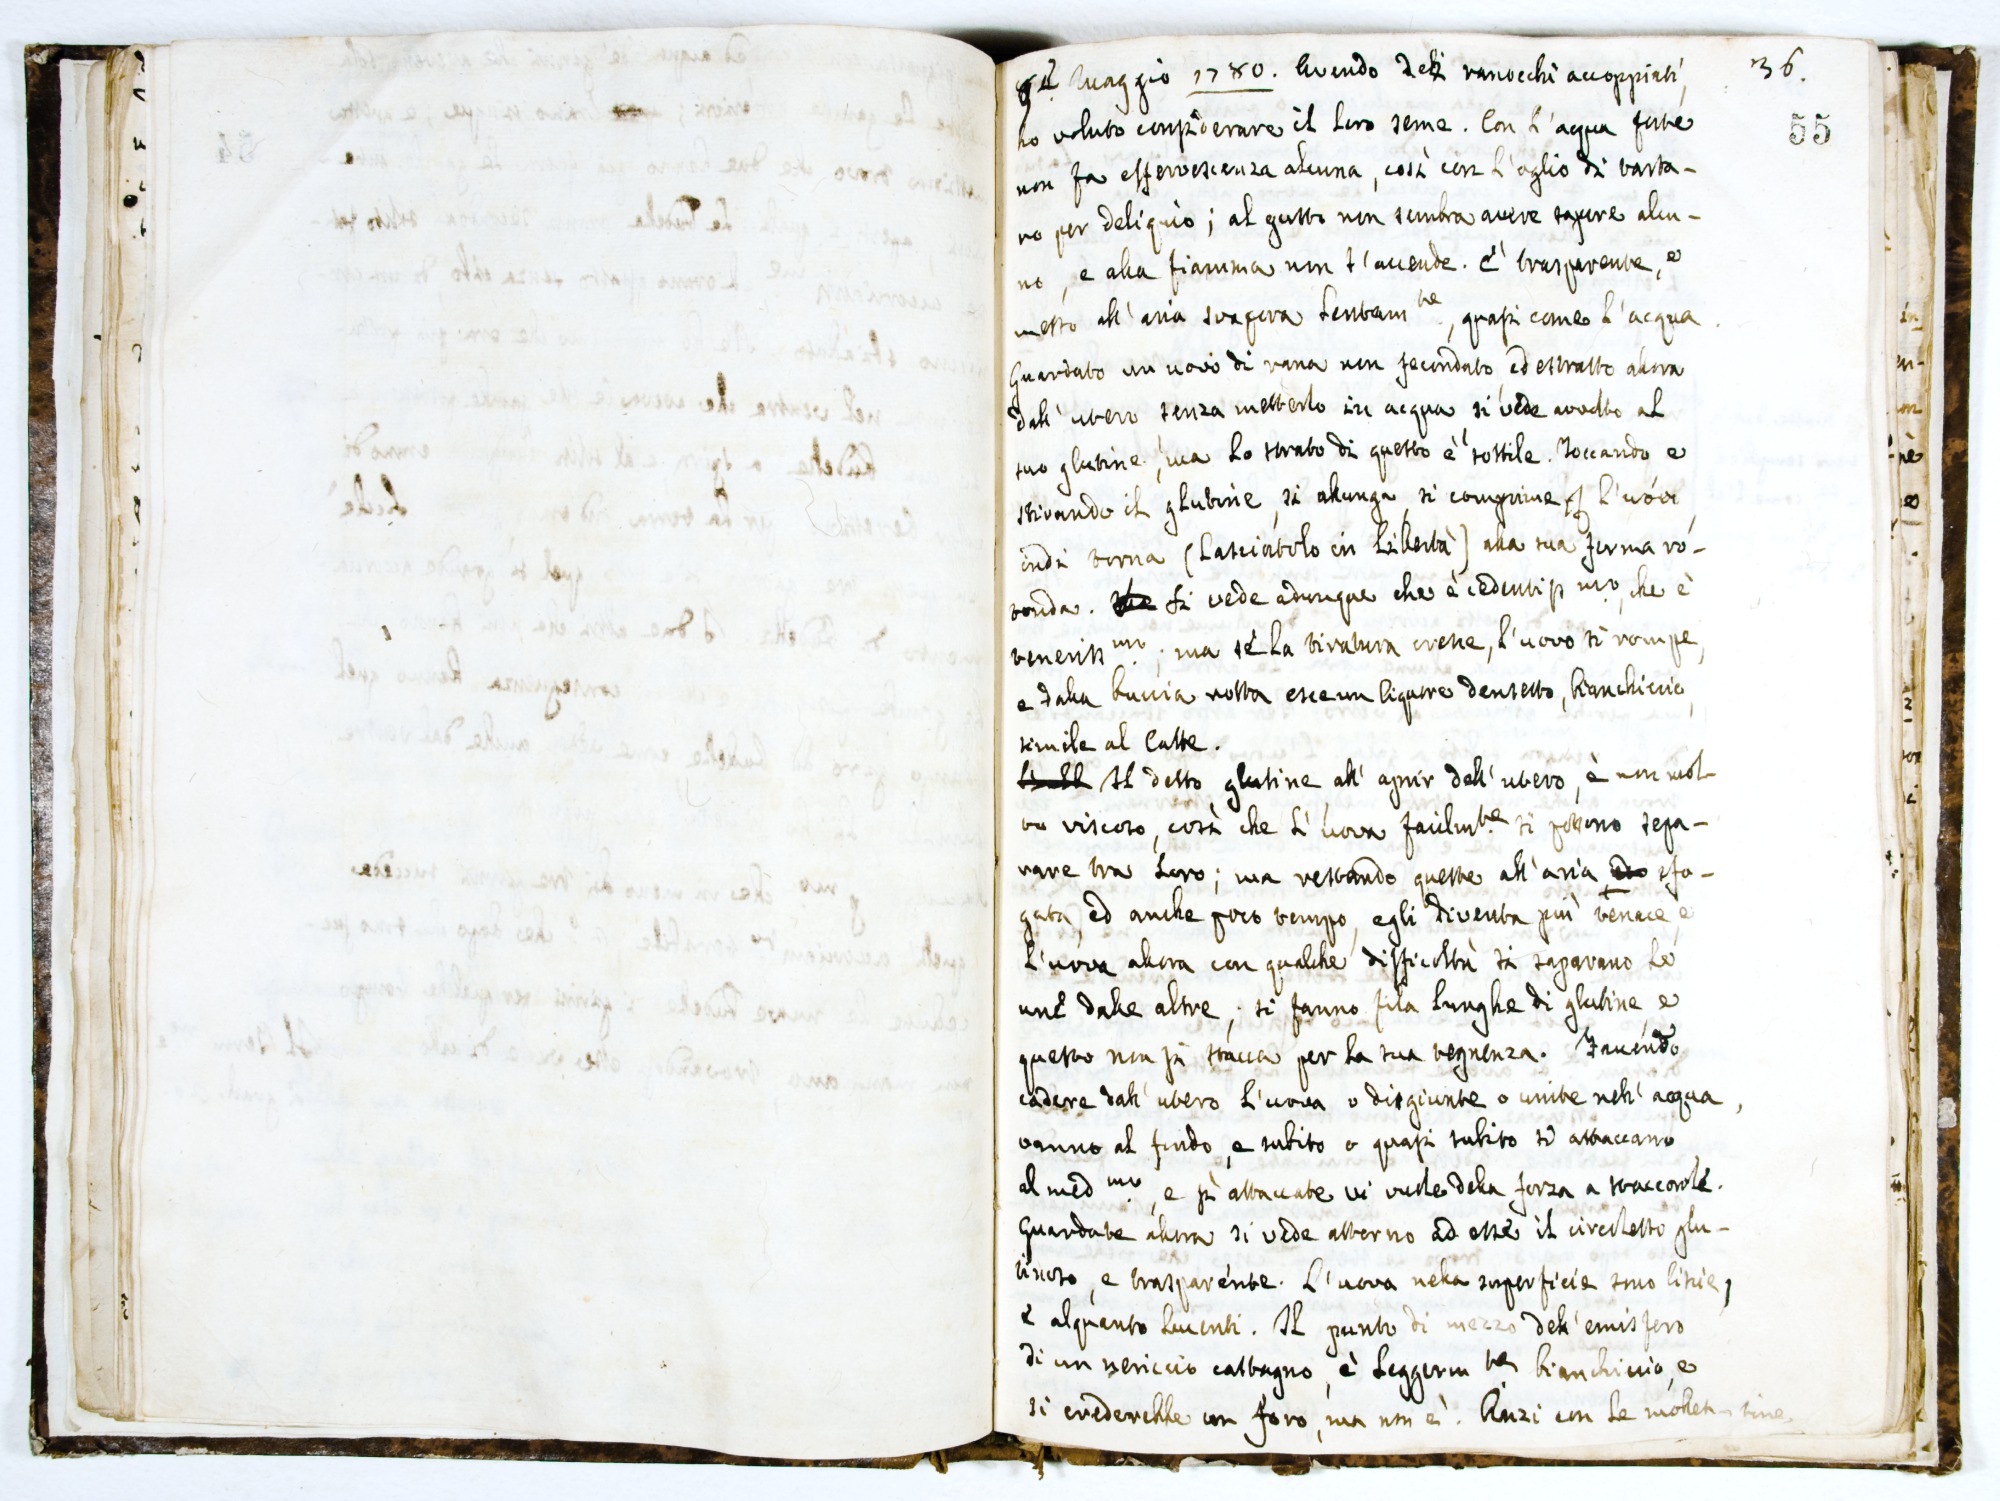 36.
55
Maggio 1780. Avendo dei ranocchi accoppiati,
ho voluto considerare il loro seme. Con l'acqua forte
non fa effervescenza alcuna, così con l'oglio di tarta-
ro per deliquio; al gusto non sembra avere sapore alcu-
no, e alla fiamma non s'accende. È trasparente, e
messo all'aria svapora lentam.te, quasi come l'acqua.
Guardato un uovo di rana non fecondato ed estratto allora
dall'utero senza metterlo in acqua si vede avvolto al
suo glutine, ma lo strato di questo è sottile. Toccando e
stirando il glutine, si allunga, si comprime l'uovo
indi torna (lasciatolo in libertà) alla sua forma ro-
tonda. Si vede adunque che è cedentiss.mo, che è
teneriss.mo; ma se la tiratura cresce, l'uovo si rompe,
e dalla buccia rotta esce un liquore densetto, bianchiccio,
simile al latte.
Il detto glutine all'aprir dell'utero, è non mol-
to viscoso, così che l'uova facilm.te si possono sepa-
rare tra loro; ma restando queste all'aria sfo-
gata, ed anche poco tempo, egli diventa più tenace e
l'uova allora con qualche difficoltà si separano le
une dalle altre, si fanno fila lunghe di glutine e
questo non si stacca per la sua tegnenza. Facendo
cadere dall'utero l'uova o disgiunte o unite nell'acqua,
vanno al fondo, e subito o quasi subito si attaccano
al med.mo, e sì attaccate vi vuole della forza a staccarle.
Guardate allora si vede attorno ad esse il circoletto glu-
tinoso, e trasparente. L'uova nella superficie sono liscie,
e alquanto lucenti. Il punto di mezzo dell'emisfero
di un nericcio castagno, è leggerm.te bianchiccio, e
si crederebbe un foro, ma non è. Anzi con le mollettine